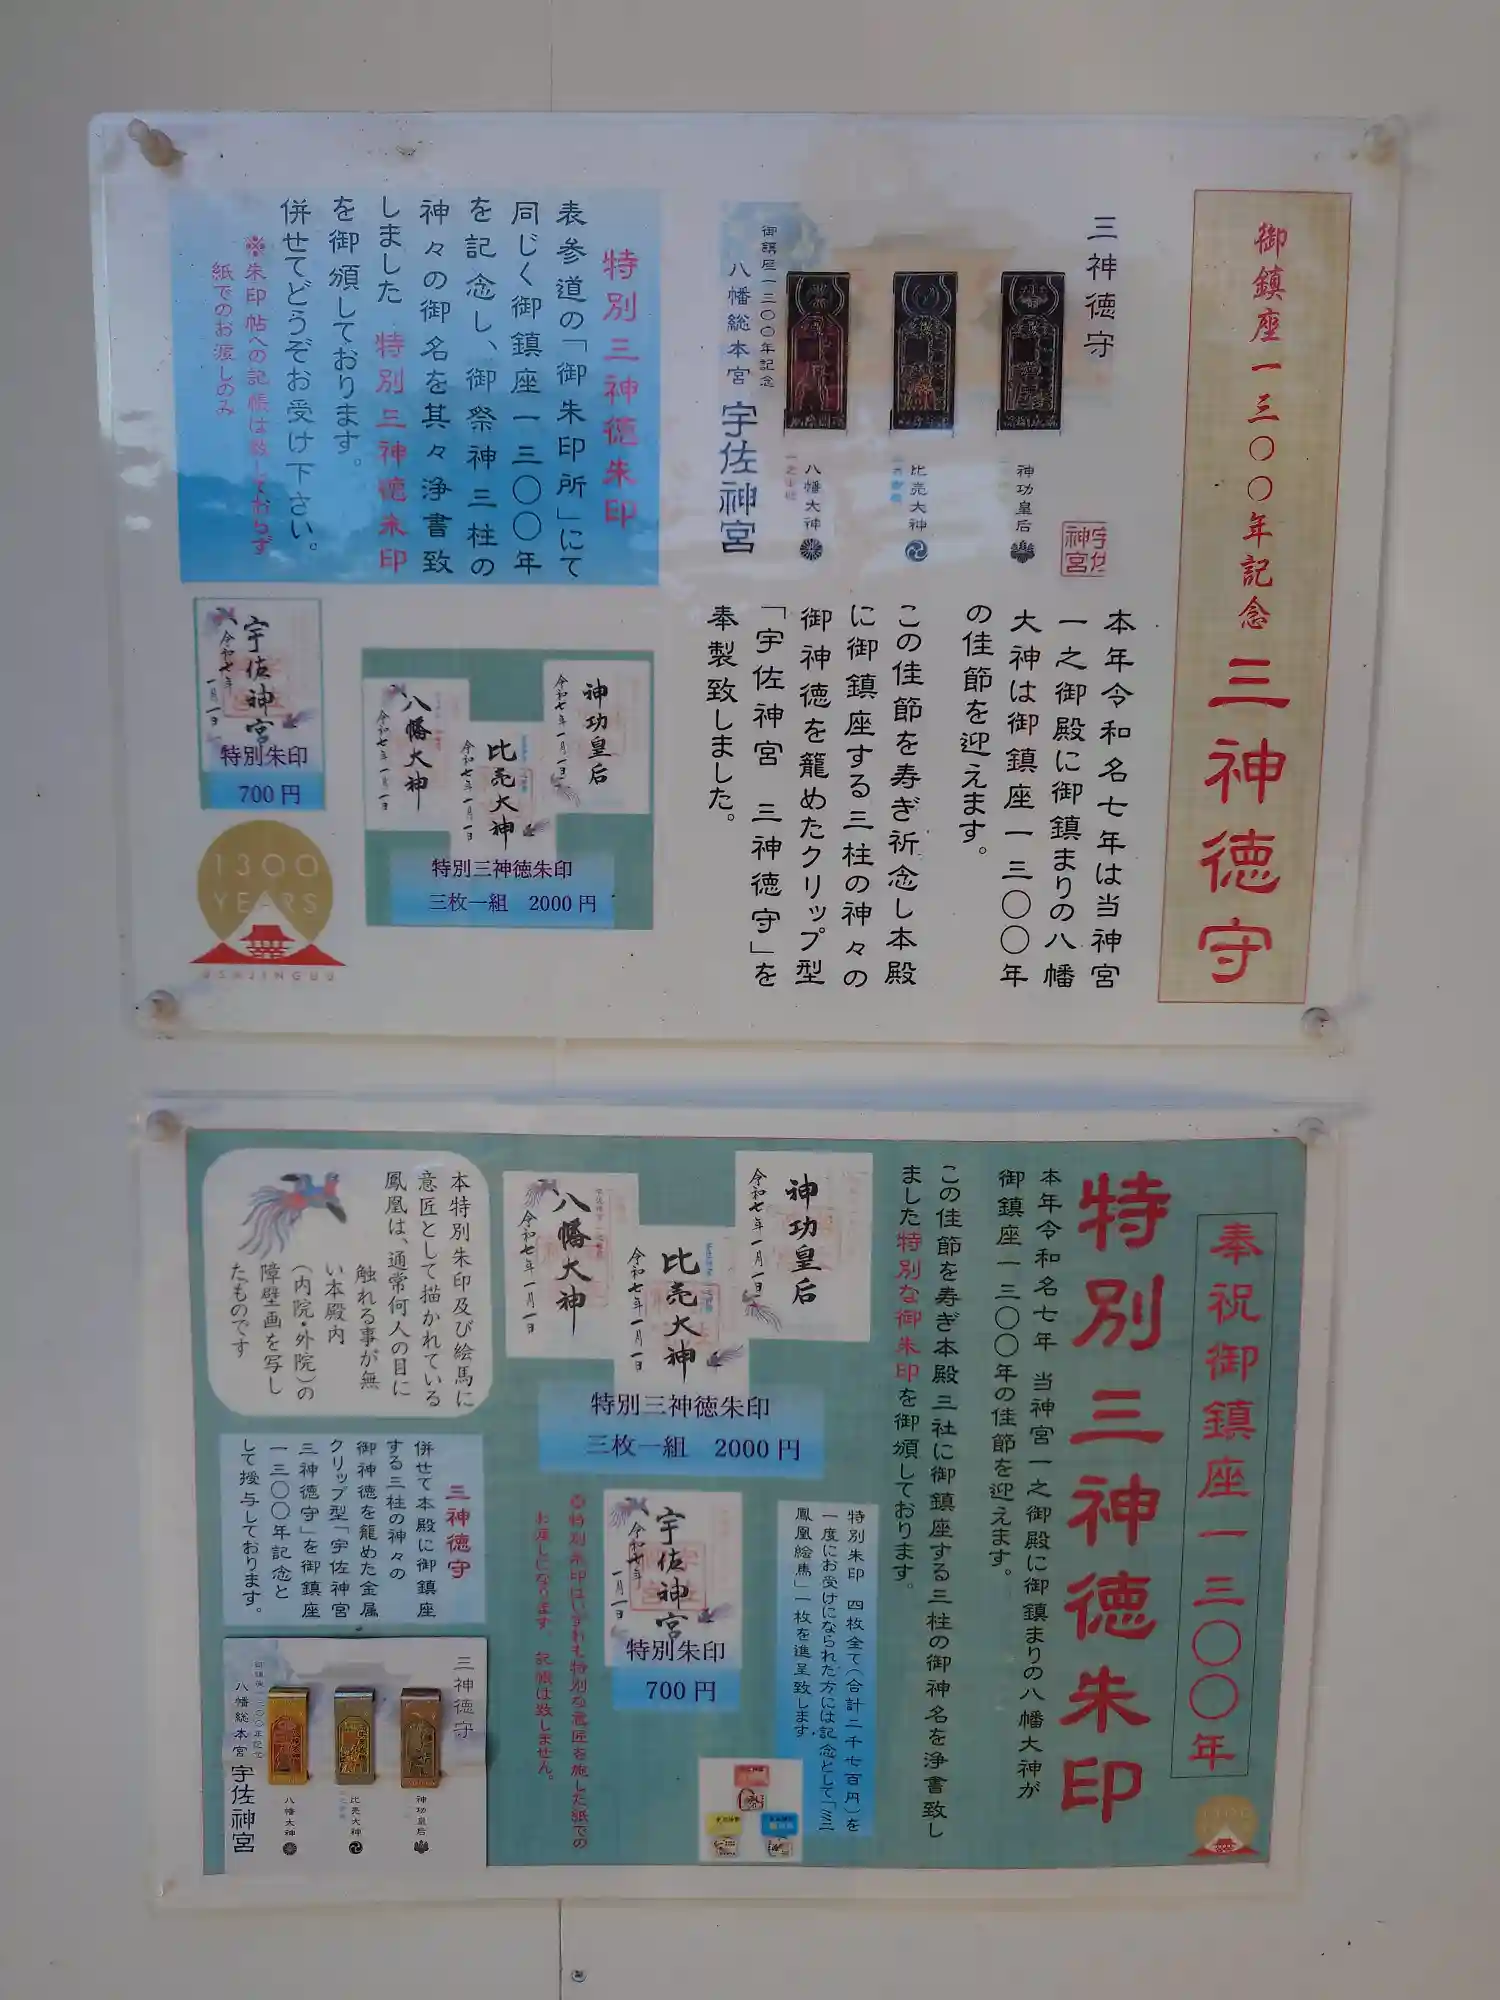 御鎮座一三〇〇年記念 三神徳守
三神徳守
神功皇后
比売大神
八幡大神
御鎮座一三〇〇年記念
八幡総本宮 宇佐神宮
宇佐神宮
本年令和名七年は当神宮
一之御殿に御鎮まりの八幡
大神は御鎮座一三〇〇年
の佳節を迎えます。
この佳節を寿ぎ祈念し本殿
に御鎮座する三柱の神々の
御神徳を籠めたクリップ型
「宇佐神宮 三神徳守」を
奉製致しました。
特別三神徳朱印
表参道の「御朱印所」にて
同じく御鎮座一三〇〇年
を記念し、御祭神三柱の
神々の御名を其々浄書致
しました 特別三神徳朱印
を御頒しております。
併せてどうぞお受け下さい。
※朱印帖への記帳は致しておらず
紙でのお渡しのみ
神功皇后
令和七年一月一日
比売大神
令和七年一月一日
八幡大神
令和七年一月一日
特別三神徳朱印
三枚一組 2000円
宇佐神宮
令和七年
一月一日
特別朱印
700円
1300
YEARS
USAJINGUU
奉祝御鎮座一三〇〇年
特別三神徳朱印
本年令和名七年 当神宮一之御殿に御鎮まりの八幡大神が
御鎮座一三〇〇年の佳節を迎えます。
この佳節を寿ぎ本殿三社に御鎮座する三柱の御神名を浄書致し
ました特別な御朱印を御頒しております。
神功皇后
令和七年一月一日
比売大神
令和七年一月一日
八幡大神
令和七年一月一日
特別三神徳朱印
三枚一組 2000円
特別朱印 四枚全て(合計二千七百円)を
一度にお受けになられた方には記念として「ミニ
鳳凰絵馬」一枚を進呈致します
宇佐神宮
令和七年
一月一日
特別朱印
700円
※特別朱印はいずれも特別な意匠を施した紙での
お渡しになります 記帳は致しません。
本特別朱印及び絵馬に
意匠として描かれている
鳳凰は、通常何人の目に
触れる事が無
い本殿内
(内院・外院)の
障壁画を写し
たものです
三神徳守
併せて本殿に御鎮座
する三柱の神々の
御神徳を籠めた金属
クリップ型「宇佐神宮
三神徳守」を御鎮座
一三〇〇年記念と
して授与しております。
三神徳守
神功皇后
比売大神
八幡大神
御鎮座一三〇〇年記念
八幡総本宮 宇佐神宮
1300
YEARS